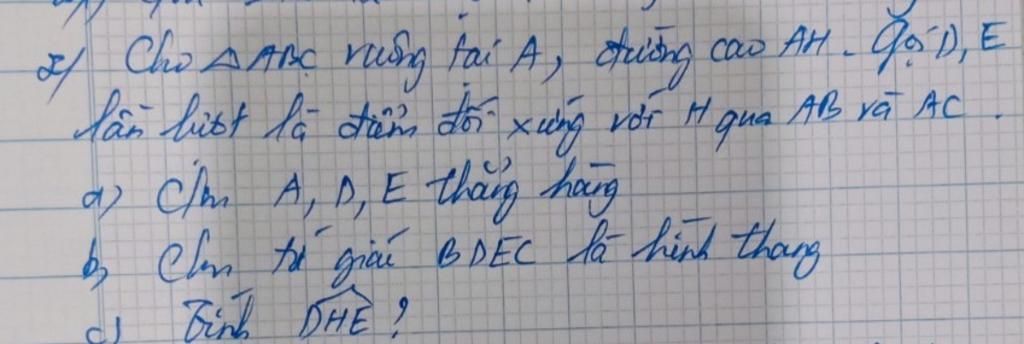 2/ Cho △ABC vuông tại A, đường cao AH. Gọi D, E
lần lượt là điểm đối xứng với H qua AB và AC.
a) C/m A, D, E thẳng hàng
b) C/m tứ giác BDEC là hình thang
c) Tính DHE ?